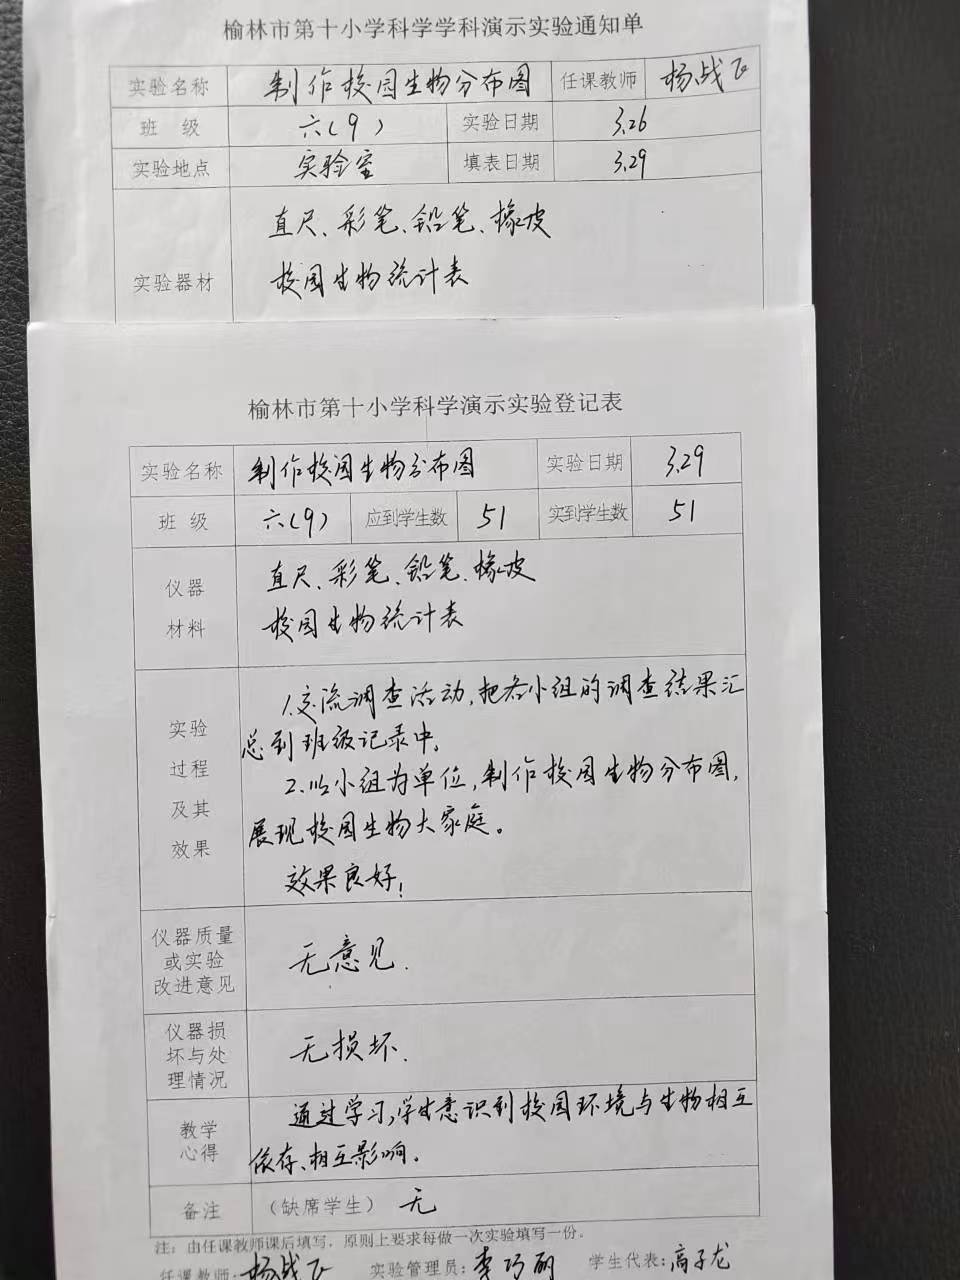 榆林市第十小学科学学科演示实验通知单
实验名称 制作校园生物分布图 任课教师 杨战飞
班 级 六(9) 实验日期 3.26
实验地点 实验室 填表日期 3.29
直尺、彩笔、铅笔、橡皮
实验器材 校园生物统计表
榆林市第十小学科学演示实验登记表
实验名称 制作校园生物分布图 实验日期 3.29
班 级 六(9) 应到学生数 51 实到学生数 51
仪器 直尺、彩笔、铅笔、橡皮
材料 校园生物统计表
实验
过程
及其
效果
1.交流调查活动,把各小组的调查结果汇
总到班级记录中。
2.以小组为单位,制作校园生物分布图,
展现校园生物大家庭。
效果良好!
仪器质量
或实验
改进意见
无意见.
仪器损
坏与处
理情况
无损坏.
教学
心得
通过学习,学生意识到校园环境与生物相互
依存、相互影响。
备注 (缺席学生) 无
注:由任课教师课后填写,原则上要求每做一次实验填写一份。
任课教师:杨战飞 实验管理员:李巧丽 学生代表:高子龙